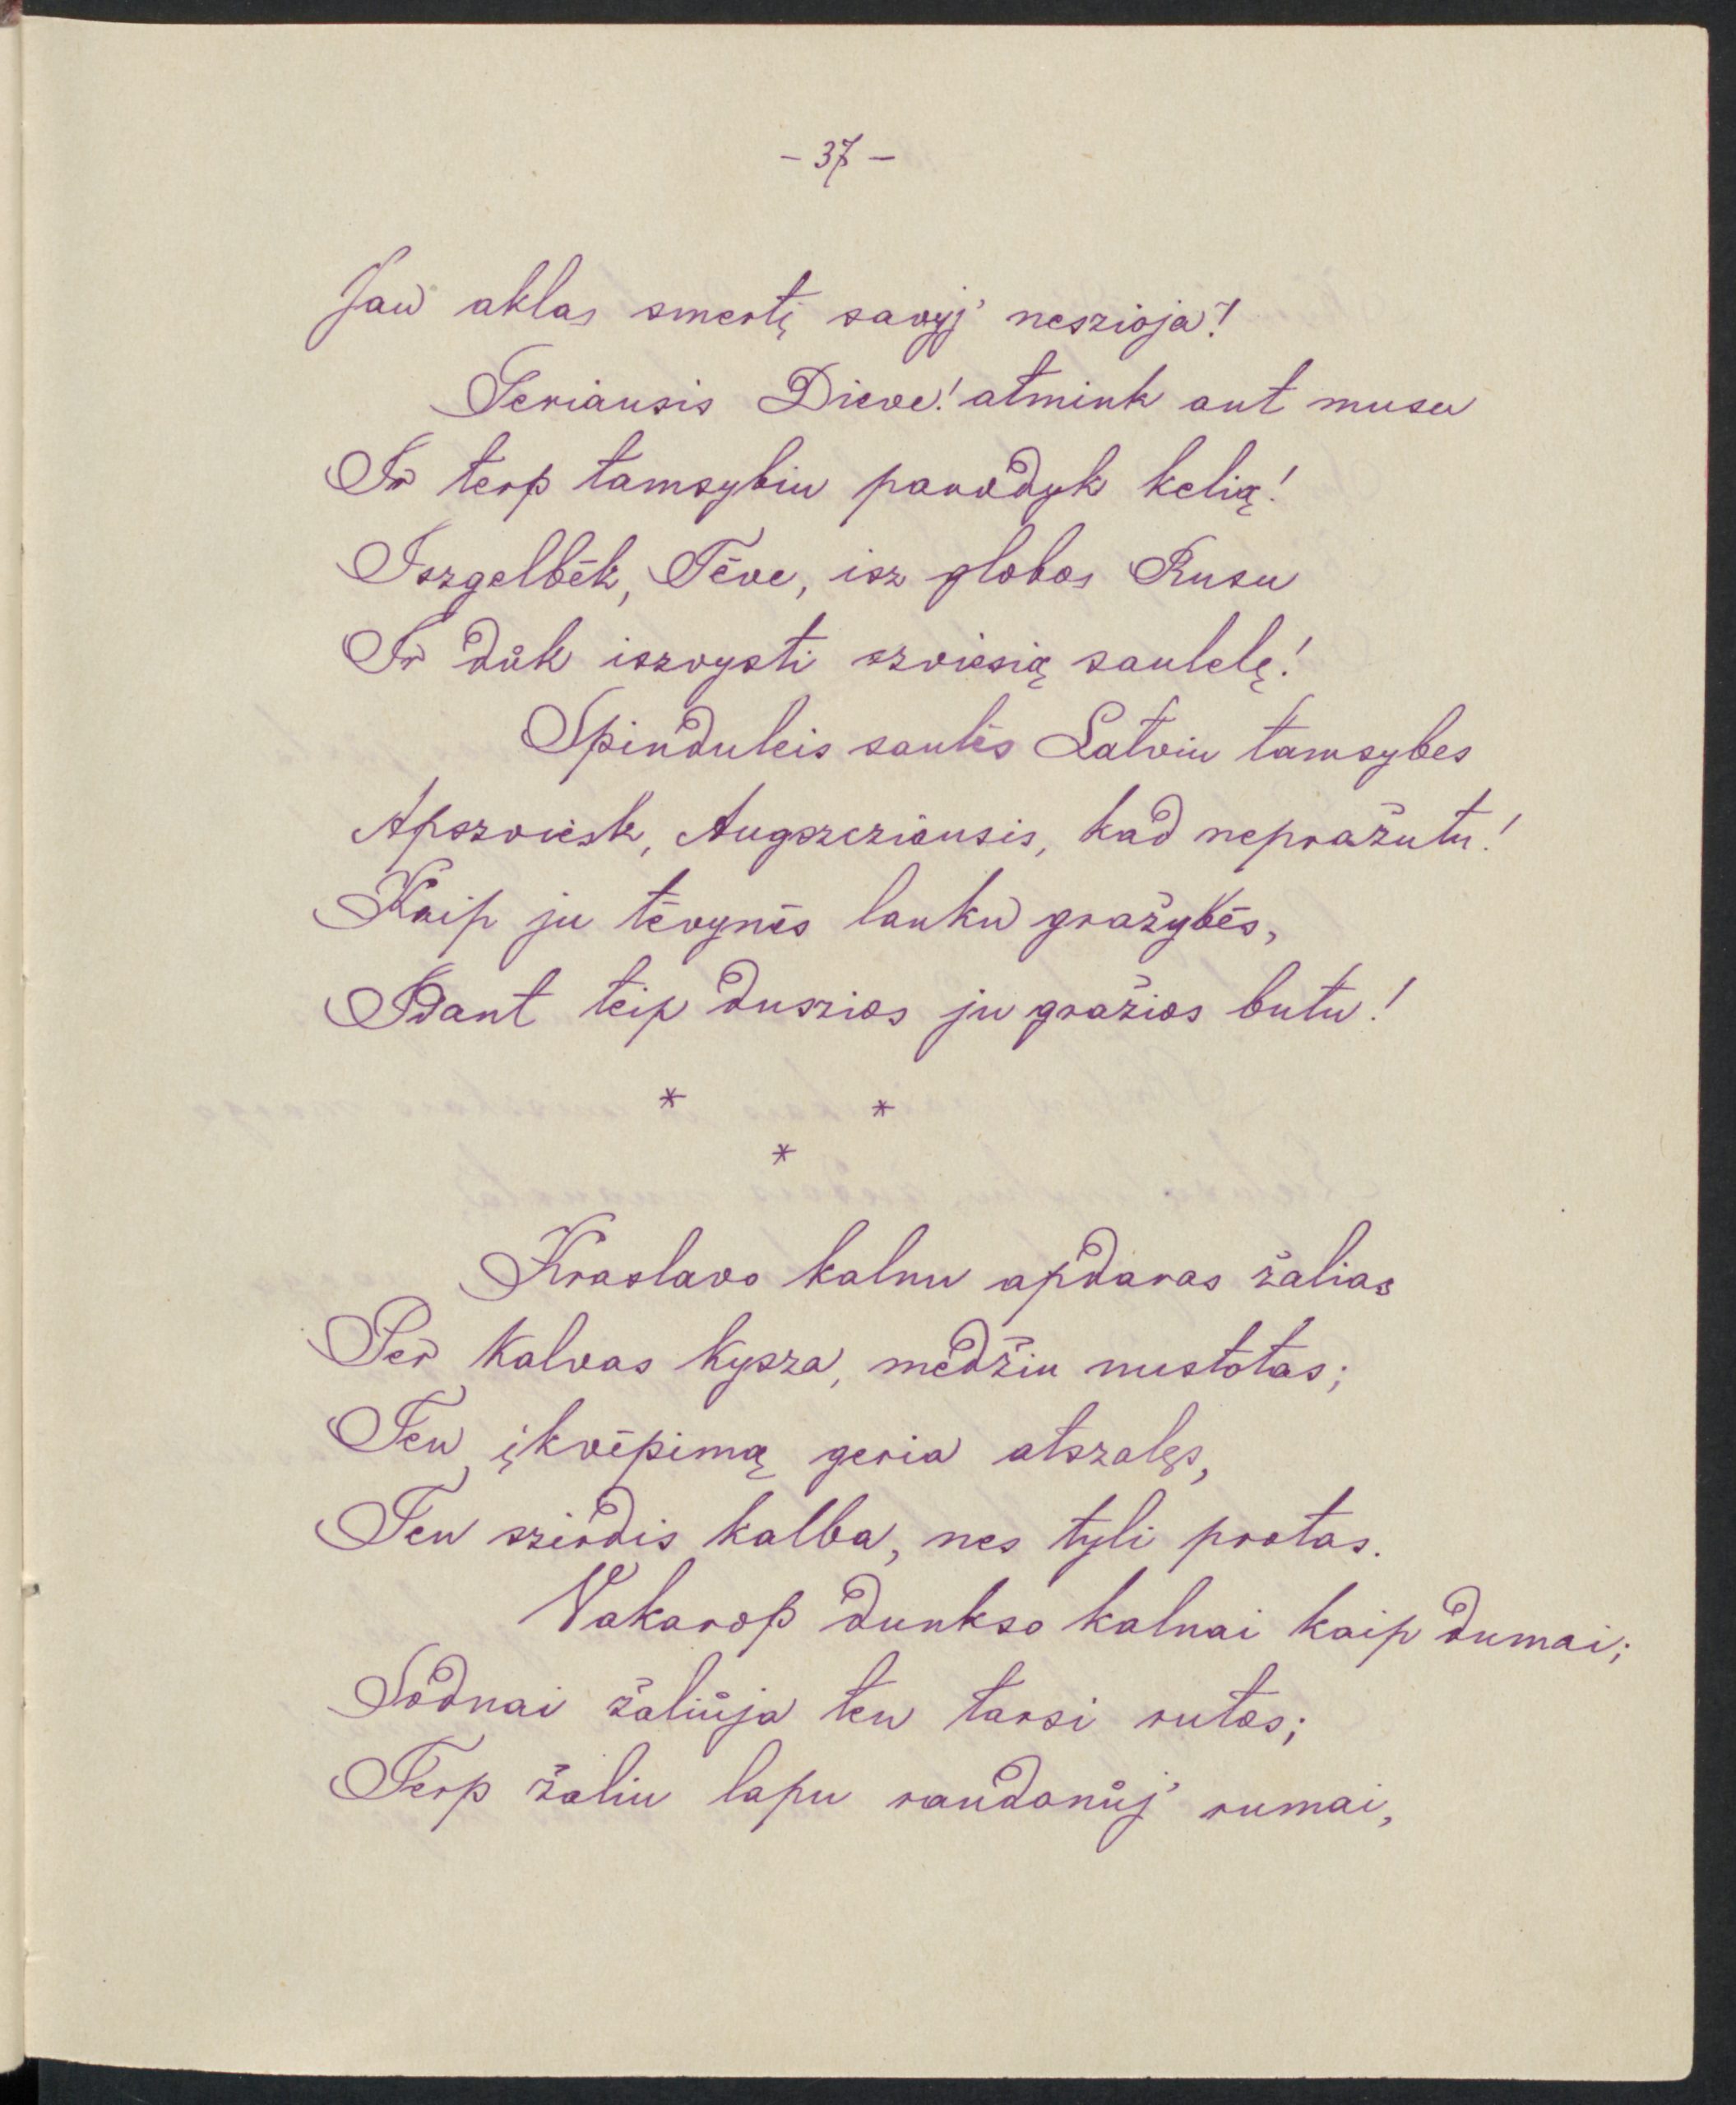 - 37 -
Jau aklas smertį savyj' neszioja!
Geriausis Dieve! atmink ant musu
Ir terp tamsybiu parodyk kelią!
Iszgelbėk, Tėve, isz globos Rusu
Ir důk iszvysti szviesią saulelę!
Spinduleis saulės Latviu tamsybes
Apszviesk, Augszcziausis, kad nepražutu!
Kaip ju tėvynės lauku gražybės,
Idant teip duszios ju gražios butu!
* *
*
Kraslavo kalnu apdaras žalias
Per kalvas kysza, mėdžiu nustotas;
Ten įkvėpimą geria atszalęs,
Ten szirdis kalba, nes tyli protas.
Vakarop dunkso kalnai kaip dumai;
Sodnai žaliůja ten tarsi rutos;
Terp žaliu lapu raudonůj' rumai,